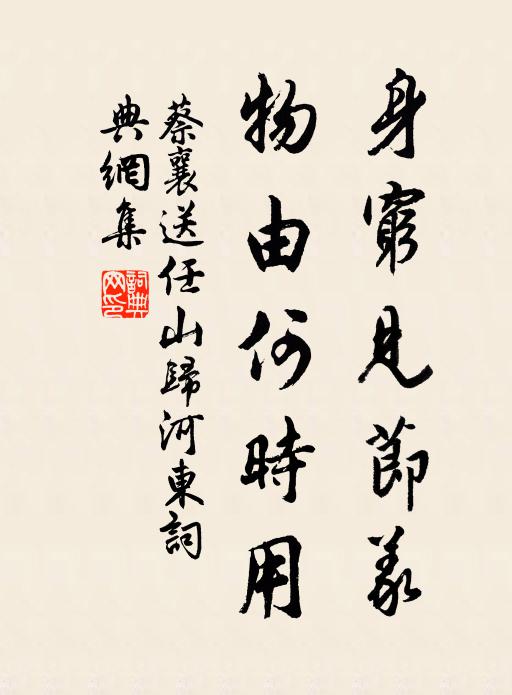 身窮見節義
物由何時用
蔡襄送任山歸河東詞
典網集
詞典網印